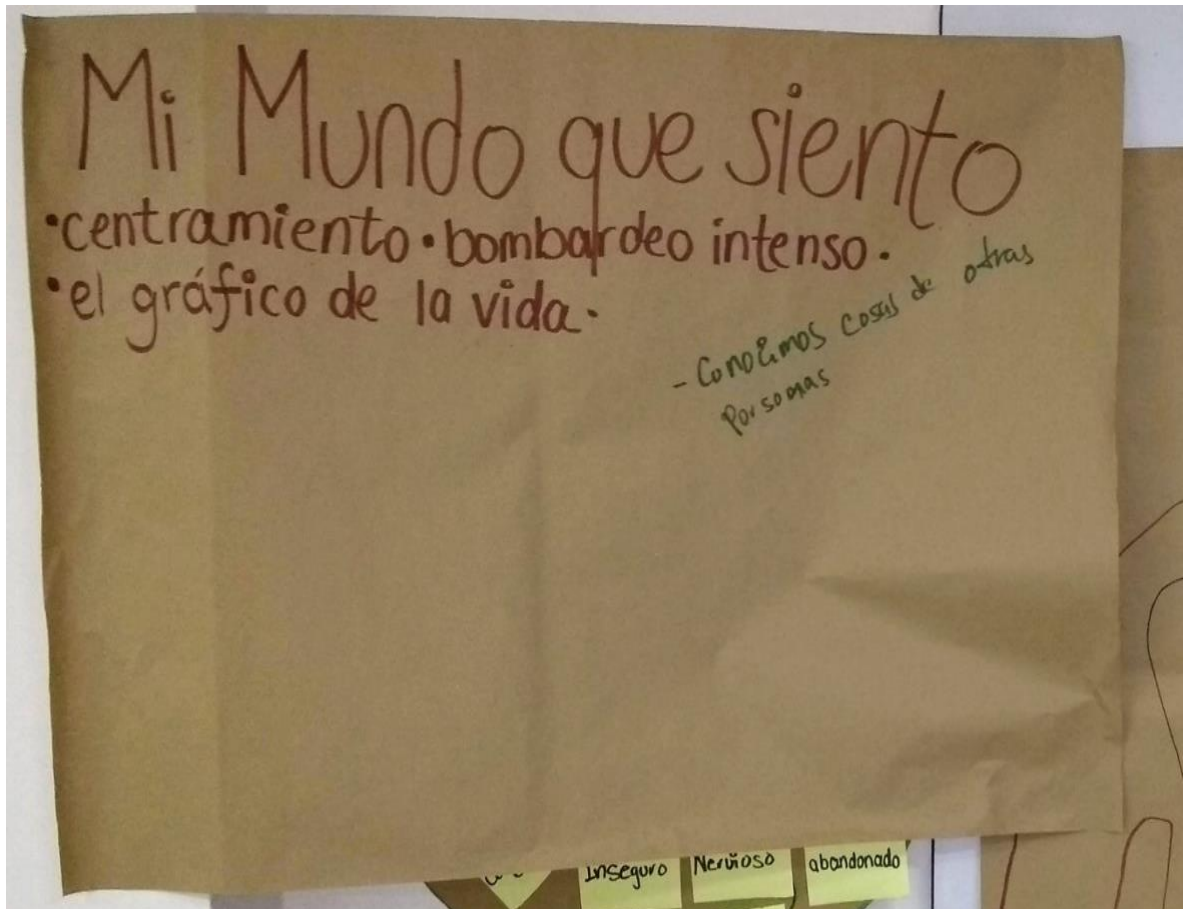 Mi Mundo que siento
•centramiento•bombardeo intenso.
•el gráfico de la vida.
- Conocimos cosas de otras
personas
Inseguro
Nervioso
abandonado